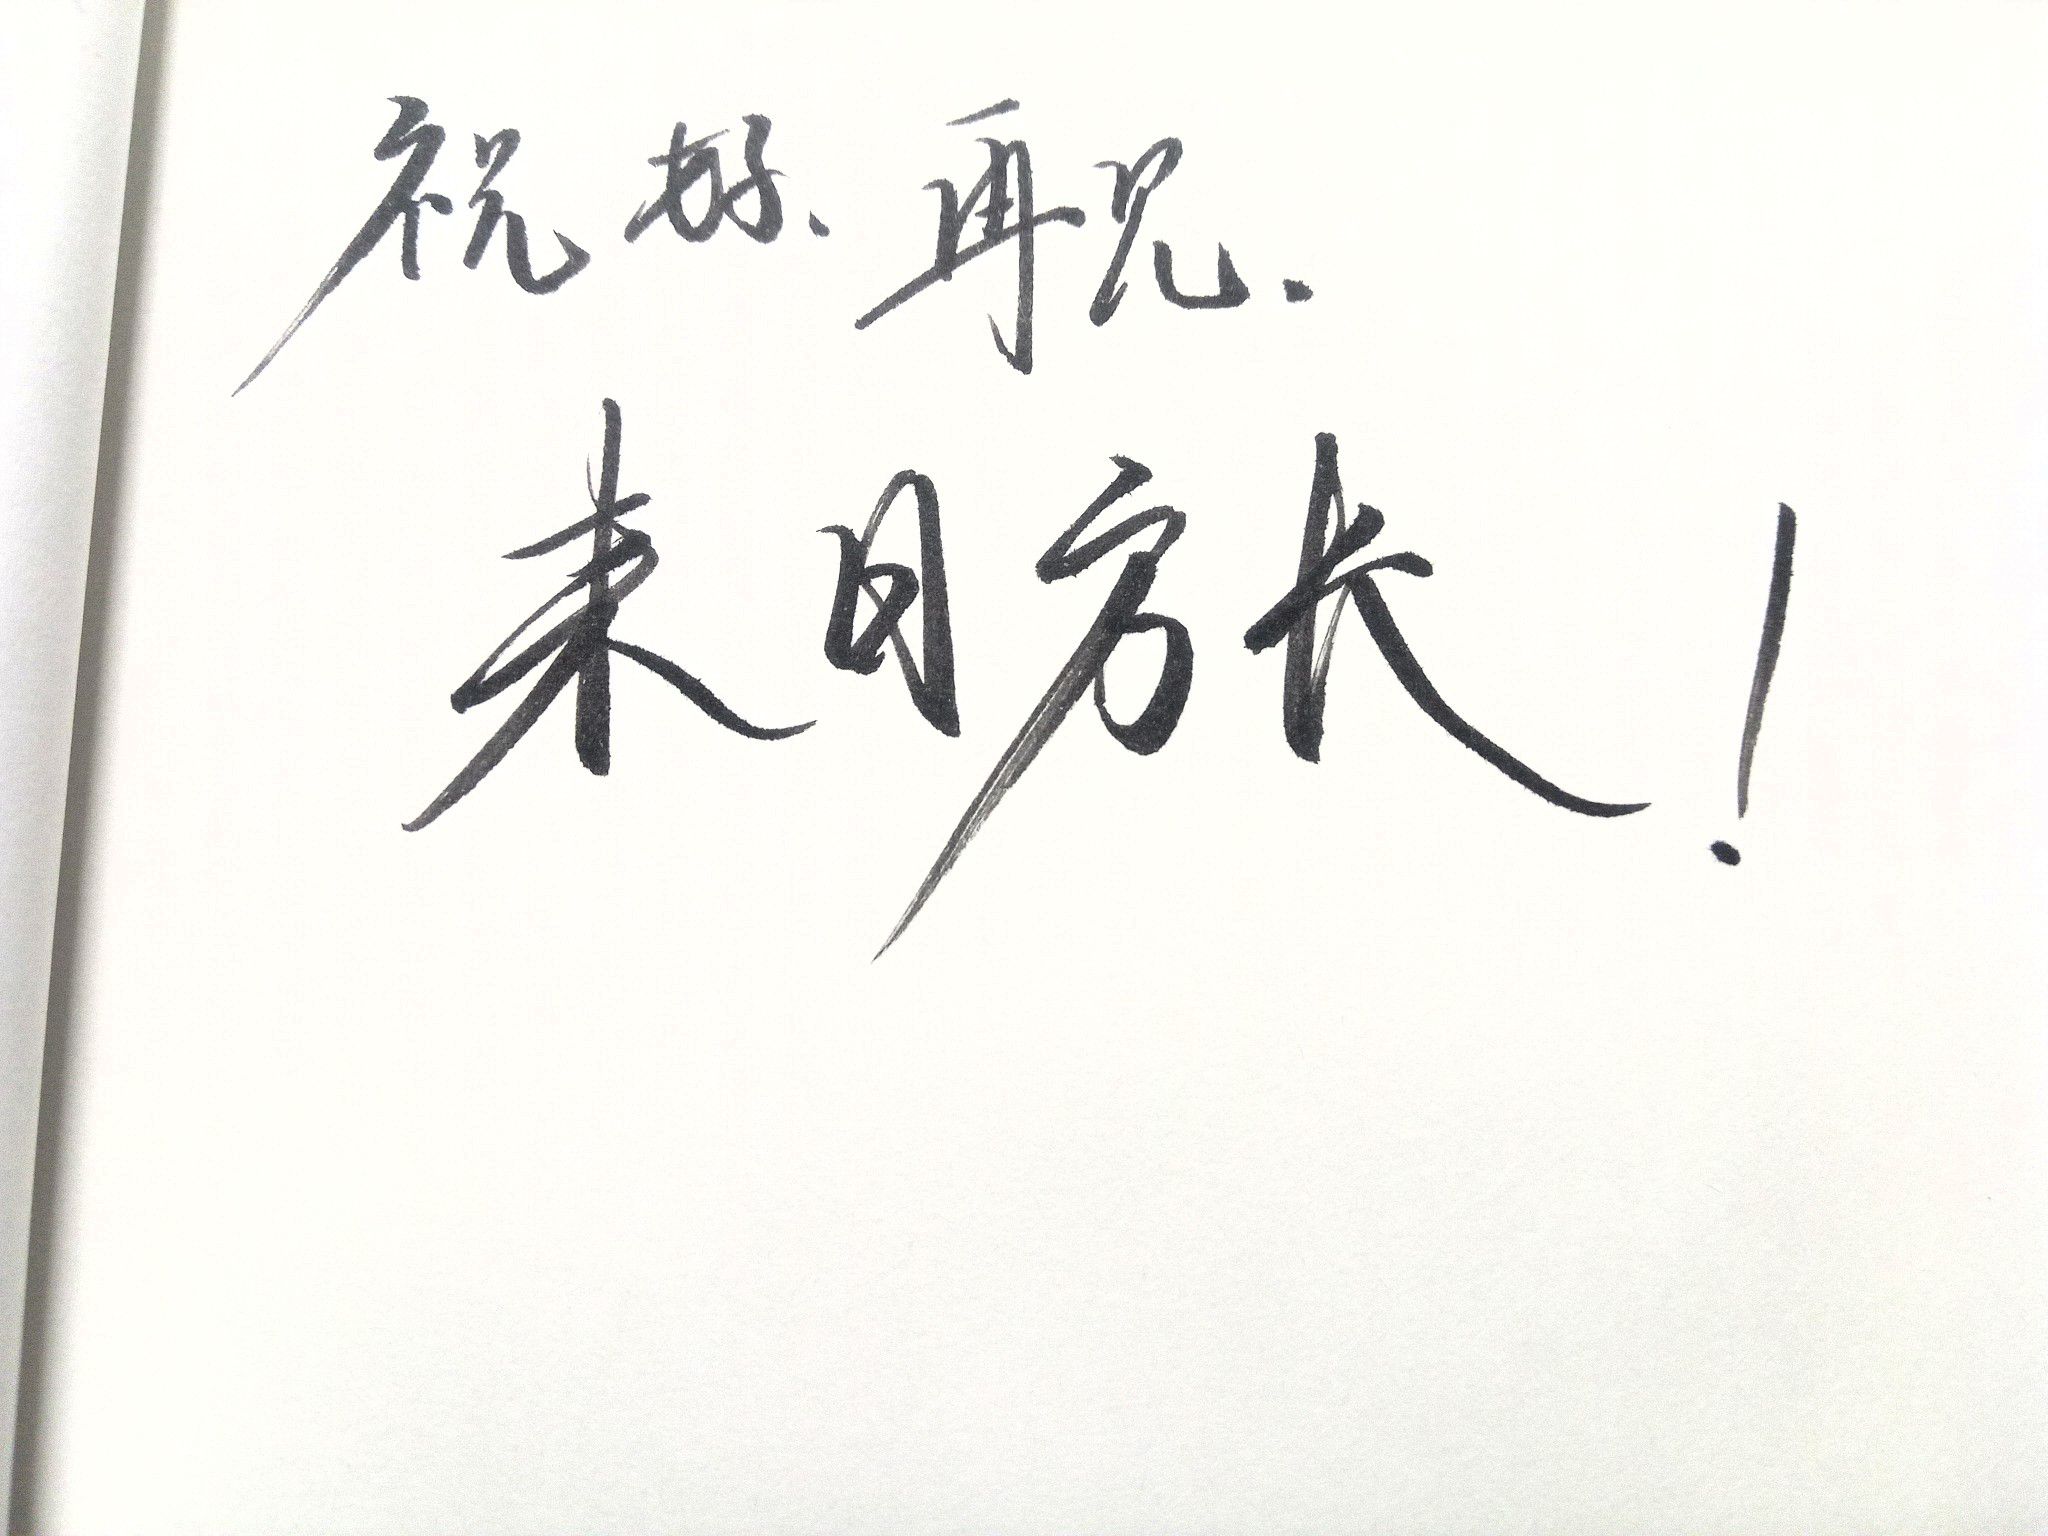 祝好.再见.
来日方长!